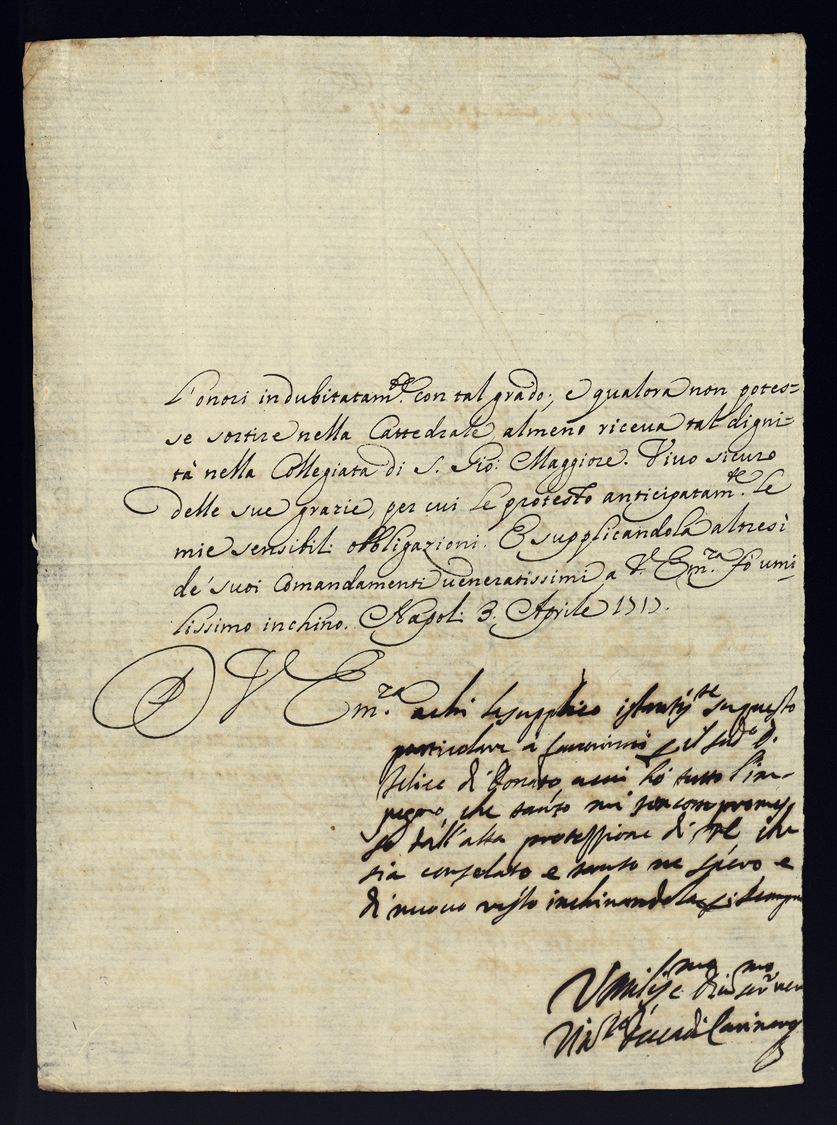 l'onori indubitatam.te con tal grado; e qualora non potes=
se sortire nella Cattedrale almeno riceva tal digni=
tà nella Collegiata di S. Gio: Maggiore. Vivo sicuro
delle sue grazie, per cui le protesto anticipatam.te le
mie sensibili obbligazioni. E supplicandola altresì
de' suoi comandamenti veneratissimi a V. Em.za fò umi=
lissimo inchino. Napoli 3. Aprile 1717.
D V Em.za a chi le supplico
particolare a favorirmi il sud.o D.
Felice di Donato, a cui hò tutto l'im=
pegno, che tanto mi son compromes
so dall'alta protezzione di VE che
sia consolato e tanto ne spero e
di nuovo resto inchinandola